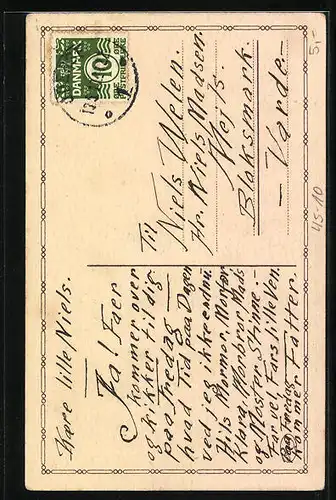 DANMARK
10
Til
Niels Welen.
Hr. Niels Madsen.
Vejrs
Blaksmark.
— Varde. —
Kære lille Niels.
Ja! Faer
kommer over
og kikker til dig
paa Fredag —
hvad Tid paa Dagen
ved jeg ikke endnu.
Hils Mormor, Morfar
Klara, Morbror Mais
og Moster Stinne. —
Farvel, Fars lille Ven.
Paa Fredag
kommer Fatter.
5.-
45-10